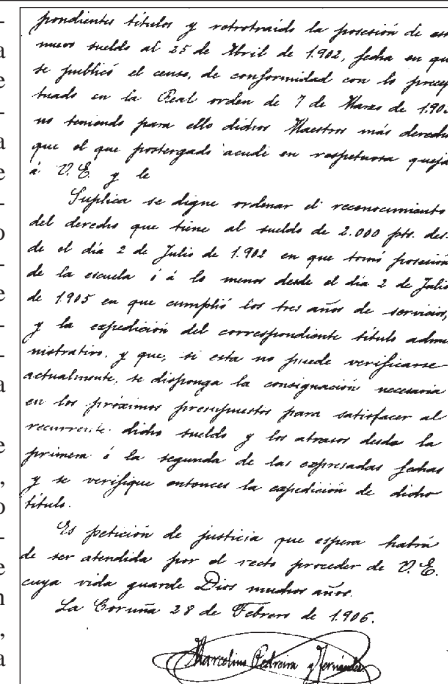 pondientes títulos y retrotraido la posesión de ese
nuevo sueldo al 25 de Abril de 1.902, fecha en que
se publicó el censo, de conformidad con lo precep
tuado en la Real orden de 7 de Marzo de 1902
no teniendo para ello dichos Maestros más derecho
que el que postergado acude en respetuosa queja
á V.E. y le
Suplica se digne ordenar el reconocimiento
del derecho que tiene al sueldo de 2.000 pts. des-
de el dia 2 de Julio de 1.902 en que tomó posesión
de la escuela ó á lo menos desde el dia 2 de Julio
de 1905 en que cumplió los tres años de servicios,
y la expedición del correspondiente título admi
nistrativo, y que, si esta no puede verificarse
actualmente, se disponga la consignación necesaria
en los próximos presupuestos para satisfacer al
recurrente dicho sueldo y los atrasos desde la
primera ó la segunda de las expresadas fechas
y se verifique entonces la expedición de dicho
título.
Es petición de justicia que espera habrá
de ser atendida por el recto proceder de V.E.
cuya vida guarde Dios muchos años.
La Coruña 28 de Febrero de 1.906.
Marcelino Pedreira y Fernández